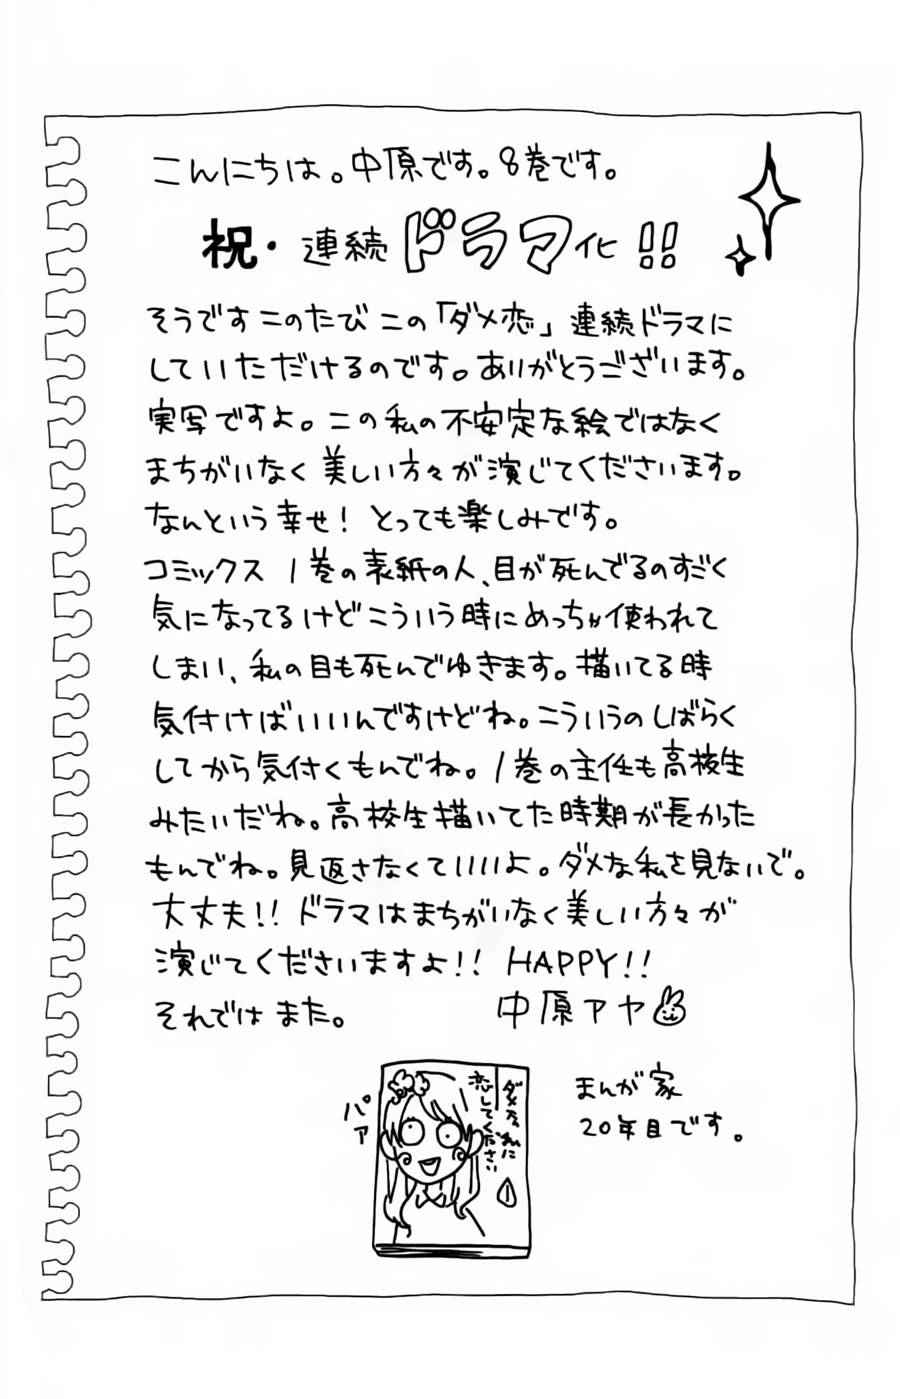 こんにちは。中原です。8巻です。
祝・連続ドラマ化!!
そうですこのたびこの「ダメ恋」連続ドラマに
していただけるのです。ありがとうございます。
実写ですよ。この私の不安定な絵ではなく
まちがいなく美しい方々が演じてくださいます。
なんという幸せ!とっても楽しみです。
コミックス1巻の表紙の人、目が死んでるのすごく
気になってるけどこういう時にめっちゃ使われて
しまい、私の目も死んでゆきます。描いてる時
気付けばいいんですけどね。こういうのしばらく
してから気付くもんでね。1巻の主任も高校生
みたいだね。高校生描いてた時期が長かった
もんでね。見返さなくていいよ。ダメな私を見ないで。
大丈夫!!ドラマはまちがいなく美しい方々が
演じてくださいますよ!! HAPPY!!
それではまた。 中原アヤ
パァ
ダメな私に
恋してください
1
まんが家
20年目です。